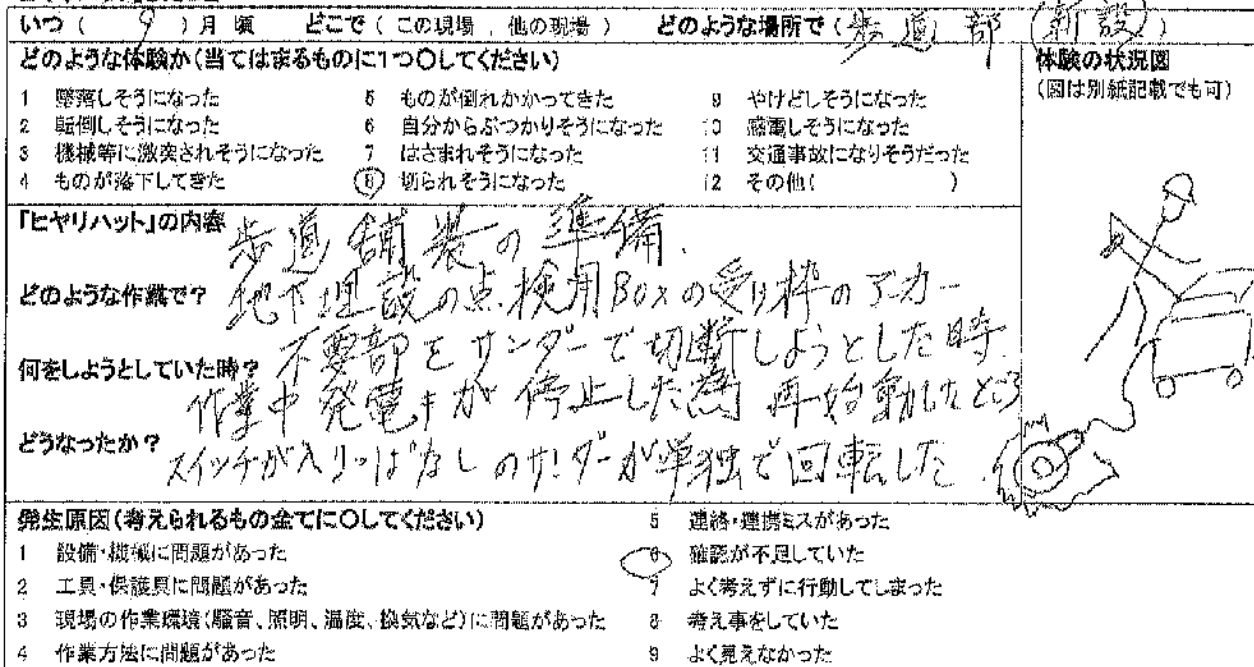 いつ（ 9 ）月頃 どこで（ この現場 , 他の現場 ） どのような場所で（歩道部（新設））
どのような体験か（当てはまるものに1つ○してください）
1 墜落しそうになった
2 転倒しそうになった
3 機械等に激突されそうになった
4 ものが落下してきた
5 ものが倒れかかってきた
6 自分からぶつかりそうになった
7 はさまれそうになった
8 切られそうになった
9 やけどしそうになった
10 感電しそうになった
11 交通事故になりそうだった
12 その他（ ）
体験の状況図
（図は別紙記載でも可）
「ヒヤリハット」の内容
歩道舗装の準備.
どのような作業で？ 地下埋設の点検用Boxの受け枠のアンカー
何をしようとしていた時？ 不要部をサンダーで切断しようとした時.
作業中発電キが停止した為 再始動したところ
どうなったか？ スイッチが入りっぱなしのサンダーが単独で回転した.
発生原因（考えられるもの全てに○してください）
1 設備・機械に問題があった
2 工具・保護具に問題があった
3 現場の作業環境（騒音、照明、温度、換気など）に問題があった
4 作業方法に問題があった
5 連絡・連携ミスがあった
6 確認が不足していた
7 よく考えずに行動してしまった
8 考え事をしていた
9 よく見えなかった